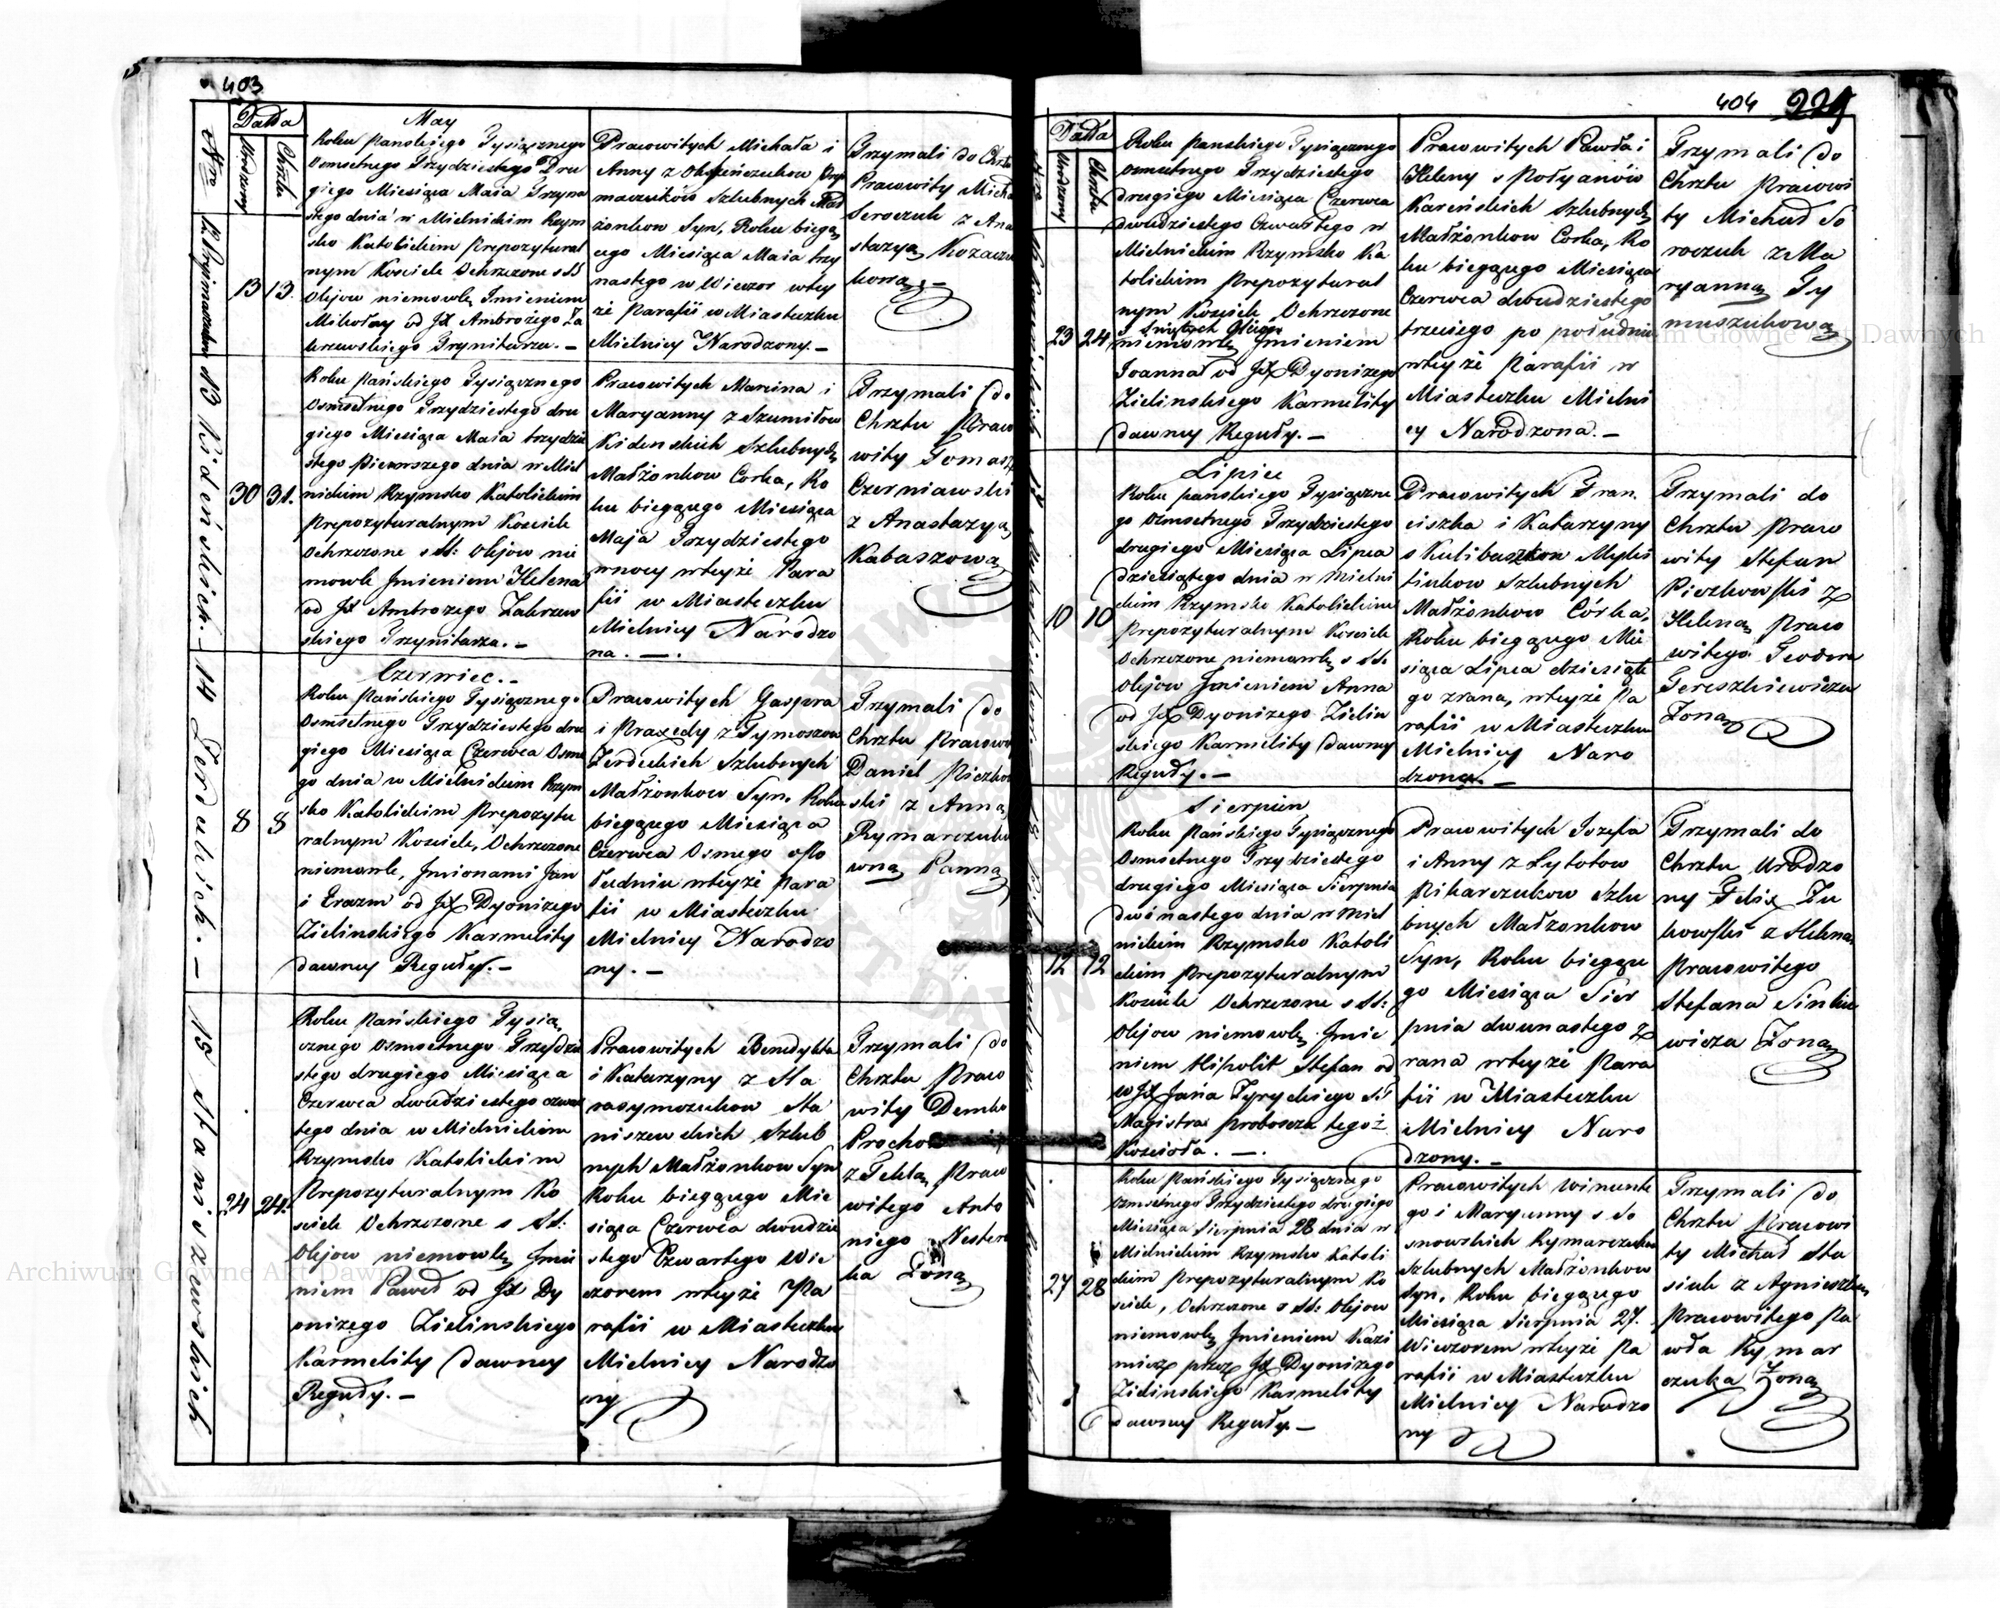 403
Datta
Nro
Urodzony
Chrztu
May
Roku Panskiego Tysiącznego
Osmsetnego Trzydziestego Dru
giego Miesiąca Maia Trzyna
stego dnia w Mielnickim Rzym
sko Katolickim Prepozytural
nym Kosciele Ochrzczone s SS
Olejow niemowle Imieniem
Mikołay od JX Ambrożego Za
krzewskiego Trynitarza. —
13 13.
Pracowitych Michała i
Anny z
maczuków Szlubnych Mał
żonkow Syn, Roku biegą
cego Miesiąca Maia trzy
nastego w Wieczor wtey
że Parafii w Miasteczku
Mielnicy Narodzony. —
Trzymali do Chrztu
Pracowity Micha
Seroczuk z Ana
stazyą Kozaczu
kową. —
13 Kideńskich. —
Roku Pańskiego Tysiącznego
Osmsetnego Trzydziestego dru
giego Miesiąca Maia trzydzie
stego Pierwszego dnia w Miel
nickim Rzymsko Katolickim
Prepozyturalnym Kosciele
Ochrzczone s SS: Olejow nie
mowle Imieniem Helena
od JX Ambrozego Zakrzew
skiego Trynitarza. —
30 31.
Pracowitych Marcina i
Maryanny z Szumiłow
Kidenskich Szlubnych
Małżonkow Corka, Ro
ku biegącego Miesiąca
Maja Trzydziestego
wnocy wteyże Para
fii w Miasteczku
Mielnicy Narodzo
na. —.
Trzymali do
Chrztu Praco
wity Tomasz
Czerniawski
z Anastazyą
Kabaszową
14 Zerdeckich. —
Czerwiec. —
Roku Pańskiego Tysiącznego
Osmsetnego Trzydziestego dru
giego Miesiąca Czerwca Osme
go dnia w Mielnickim Rzym
sko Katolickim Prepozytu
ralnym Kosciele, Ochrzczone
niemowle, Imionami Jan
i Erazm od JX Dyonizego
Zielinskiego Karmelity
dawney Reguły. —
8 8
Pracowitych Gaspra
i Praxedy z Tymoszow
Zerdeckich Szlubnych
Małżonkow Syn, Roku
biegącego Miesiąca
Czerwca Osmego oPo
łudniu wteyże Para
fii w Miasteczku
Mielnicy Narodzo
ny. —
Trzymali do
Chrztu Pracowi
Daniel Piczkow
ski z Anną
Rymarczuko
wną Panną
15 Staniszewskich
Roku Pańskiego Tysią
cznego Osmsetnego Trzydzie
stego drugiego Miesiąca
Czerwca dwudziestego czwar
tego dnia w Mielnickim
Rzymsko Katolickim
Prepozyturalnym Ko
sciele Ochrzczone s SS:
Olejow niemowle Imie
niem Paweł od JX Dy
onizego Zielinskiego
Karmelity dawney
Reguły. —
24 24.
Pracowitych Benedykta
i Katarzyny z Ha
rasymczukow Sta
niszewskich Szlub
nych Małżonkow Syn
Roku biegącego Mie
siąca Czerwca dwudzie
stego Czwartego Wie
czorem wteyże Pa
rafii w Miasteczku
Mielnicy Narodzo
ny
Trzymali do
Chrztu Praco
wity Demko
Procho
z Teklą Praco
witego Anto
niego Nestero
ka Żoną
404 225
Datta
Urodzony
Chrztu
Roku Panskiego Tysiącznego
Osmsetnego Trzydziestego
drugiego Miesiąca Czerwca
dwudziestego Czwartego w
Mielnickim Rzymsko Ka
tolickim Prepozytural
nym Kosciele Ochrzczone
s Swiętych Olejow
niemowle Imieniem
Joanna od JX Dyonizego
Zielinskiego Karmelity
dawney Reguły. —
23 24
Pracowitych Pawła i
Heleny s Połyanów
Kareńskich Szlubnych
Małżonkow Corka, Ro
ku biegącego Miesiąca
Czerwca dwudziestego
trzeciego po południu
wteyże Parafii w
Miasteczku Mielni
cy Narodzona. —
Trzymali do
Chrztu Pracowi
ty Michał So
roczuk z Ma
ryanną Ty
muszukową
Lipiec
Roku Pańskiego Tysiączne
go Osmsetnego Trzydziestego
drugiego Miesiąca Lipca
dziesiątego dnia w Mielni
ckim Rzymsko Katolickim
Prepozyturalnym Kosciele
Ochrzczone niemowle s SS.
Olejow Imieniem Anna
od JX Dyonizego Zielin
skiego Karmelity dawney
Reguły. —
10 10
Pracowitych Fran
ciszka i Katarzyny
s Kulibaszkow
Szlubnych
Małżonkow Córka,
Roku biegącego Mie
siąca Lipca dziesiąte
go zrana, wteyże Pa
rafii w Miasteczku
Mielnicy Naro
dzona. —
Trzymali do
Chrztu Praco
wity Stefan
Piczkowski z
Heleną Praco
witego Teodora
Tereszkiewicza
Żoną
Sierpień
Roku Pańskiego Tysiącznego
Osmsetnego Trzydziestego
drugiego Miesiąca Sierpnia
dwónastego dnia w Miel
nickim Rzymsko Katoli
ckim Prepozyturalnym
Kosciele Ochrzczone s SS:
Olejow niemowle Imie
niem Hipolit Stefan od
WJX Jana Tyryckiego ST
Magistra Proboszcza tegoż
Kościoła. —.
12 12
Pracowitych Jozefa
i Anny z Lytotow
Piharczukow Szlu
bnych Małżonkow
Syn, Roku biegące
go Miesiąca Sier
pnia dwunastego z
rana wteyże Para
fii w Miasteczku
Mielnicy Naro
dzony. —
Trzymali do
Chrztu Urodzo
ny Felix Zu
kowski z Heleną
Pracowitego
Stefana Sinkie
wicza Żoną
Roku Pańskiego Tysiącznego
Osmsetnego Trzydziestego drugiego
Miesiąca Sierpnia 28 dnia w
Mielnickim Rzymsko Katoli
ckim Prepozyturalnym Ko
sciele, Ochrzczone s SS: Olejow
niemowle Imieniem Kazi
mierz przez JX Dyonizego
Zielinskiego Karmelity
dawney Reguły. —
27 28
Pracowitych Wincente
go i Maryanny s So
snowskich Rymarczukow
Szlubnych Małżonkow
Syn, Roku biegącego
Miesiąca Sierpnia 27.
Wieczorem wteyże Pa
rafii w Miasteczku
Mielnicy Narodzo
ny
Trzymali do
Chrztu Pracowi
ty Michał Sta
siuk z Agnieszką
Pracowitego Pa
wła Rymar
czuka Żoną
Archiwum Główne Akt Dawnych
Archiwum Główne Akt Dawnych